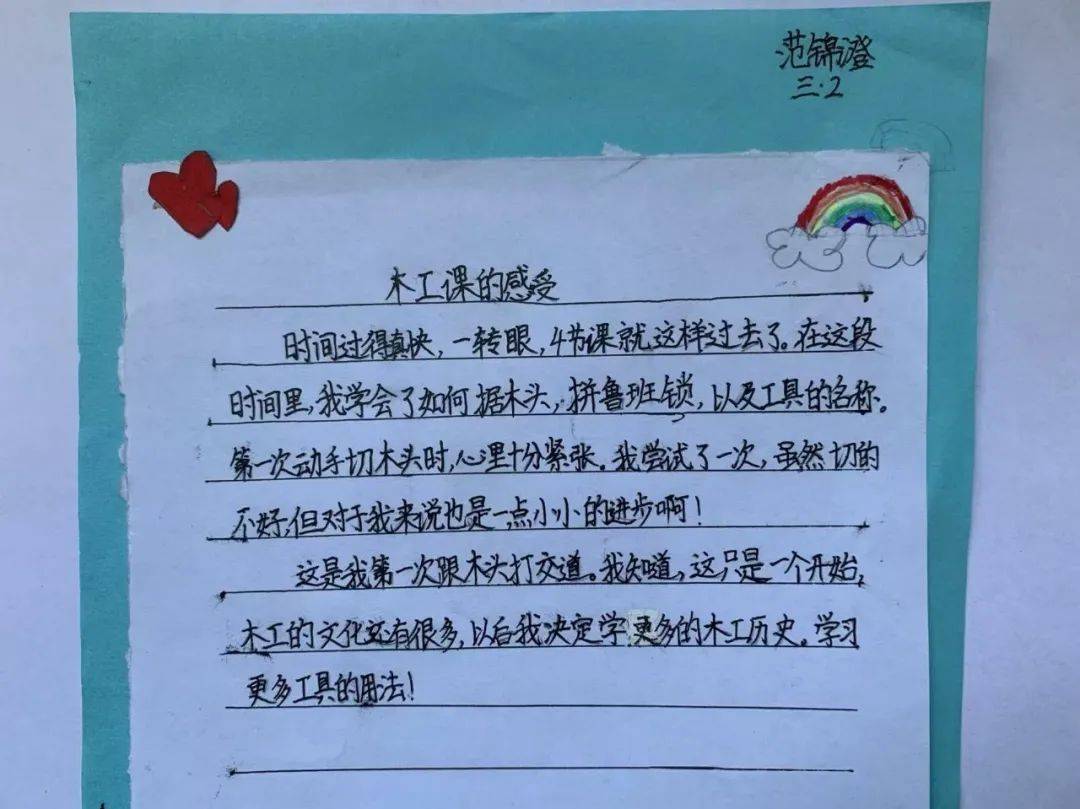 范锦澄
三·2
木工课的感受
时间过得真快，一转眼，4节课就这样过去了。在这段
时间里，我学会了如何据木头，拼鲁班锁，以及工具的名称。
第一次动手切木头时，心里十分紧张。我尝试了一次，虽然切的
不好，但对于我来说也是一点小小的进步啊！
这是我第一次跟木头打交道。我知道，这只是一个开始，
木工的文化还有很多，以后我决定学更多的木工历史。学习
更多工具的用法！